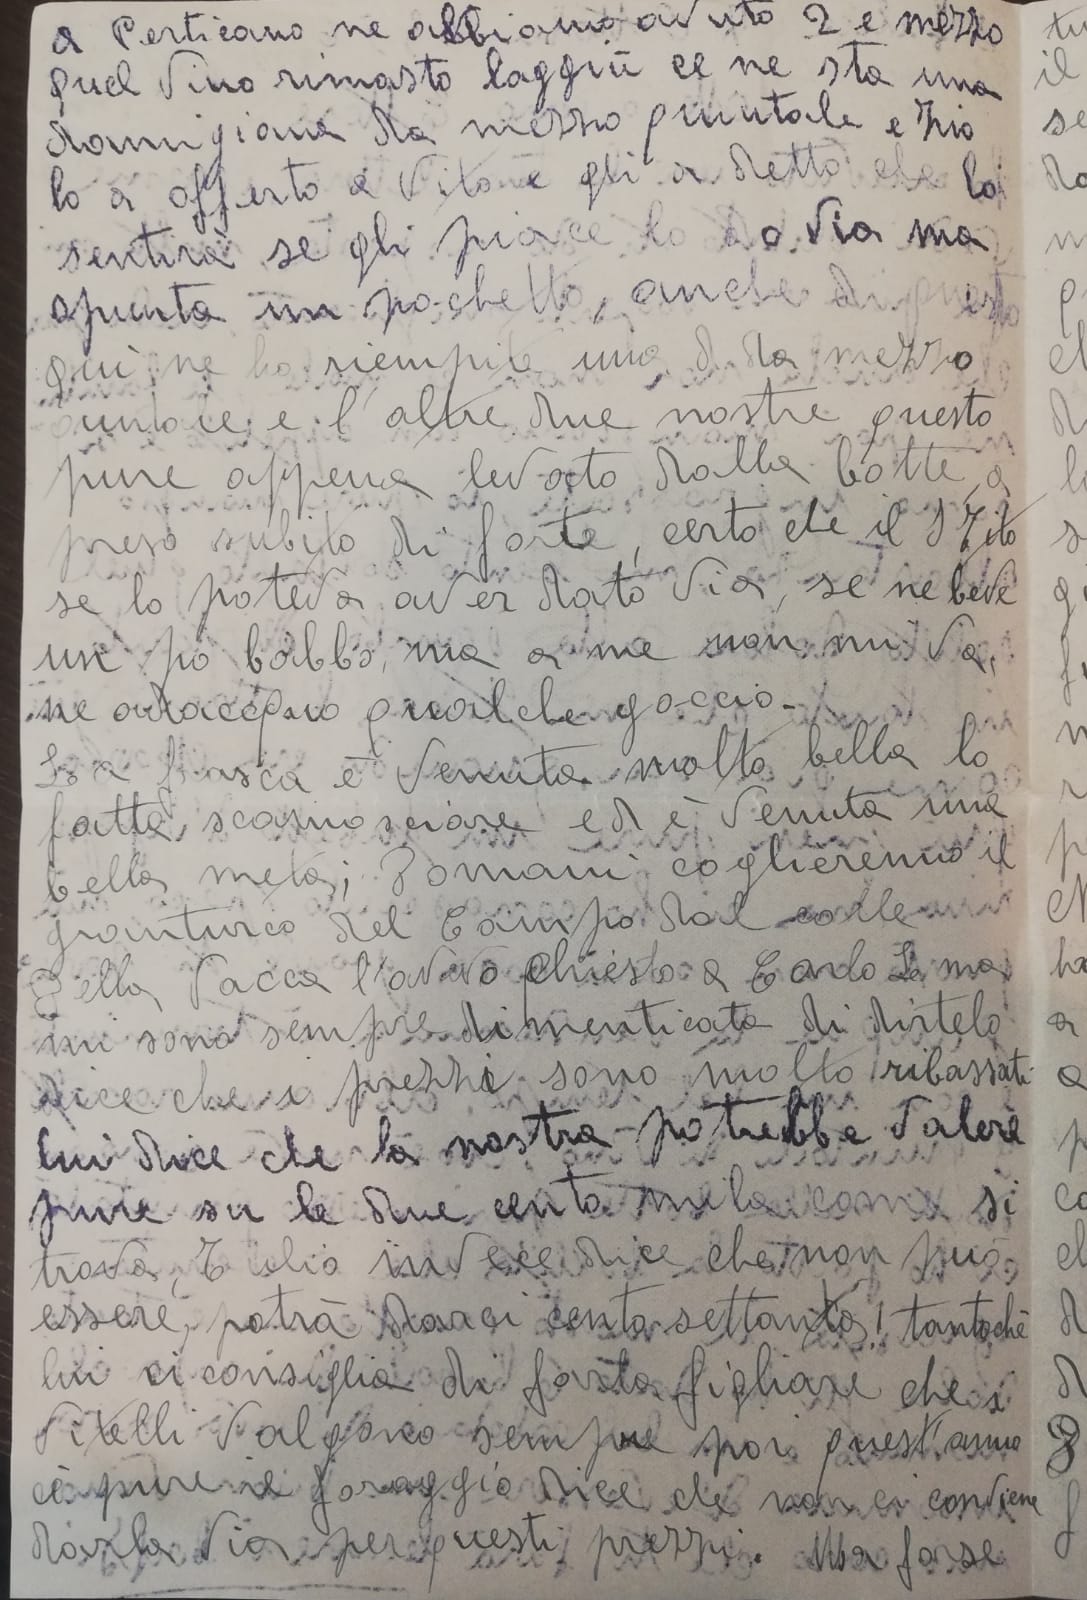 a Perticano ne abbiamo avuto 2 e mezzo
quel Vino rimasto laggiù ce ne sta una
damigiana da mezzo quintale e Zio
lo a offerto a Vito e gli a detto che lo
sentirà se gli piace lo do via ma
spunta un pochetto, anche di questo
qui ne ho riempite una d. da mezzo
e l'altre due nostre questo
pure appena levato dalla botte a
preso subito di forte, certo che il
se lo poteva aver dato via, se ne beve
un po babbo, ma a me non mi va,
ne qualche goccio.
La è venuta molto bella lo
fatta scamosciare ed è venuta una
bella meta; Domani coglieremo il
granturco del Campo dal colle
Della Vacca l'avevo chiesto a Carlo La. ma
mi sono sempre dimenticata di dirtelo
dice che i prezzi sono molto ribassati
lui dice che la nostra potrebbe valere
pure su le due cento mila come si
trova, invece dice che non può
essere, potrà darci cento settanta! tantochè
lui ci consiglia di farla figliare che i
Vitelli valgono sempre poi quest'anno
cè pure il foraggio dice che non ci conviene
darla via per questi prezzi. Ma forse